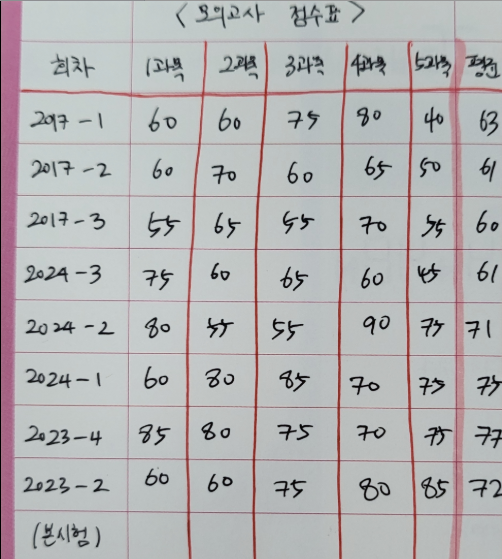 < 모의고사 점수표 >
회차 1과목 2과목 3과목 4과목 5과목 평균
2017-1 60 60 75 80 40 63
2017-2 60 70 60 65 50 61
2017-3 55 65 55 70 55 60
2024-3 75 60 65 60 45 61
2024-2 80 55 55 90 75 71
2024-1 60 80 85 70 75 75
2023-4 85 80 75 70 75 77
2023-2 60 60 75 80 85 72
(본시험)